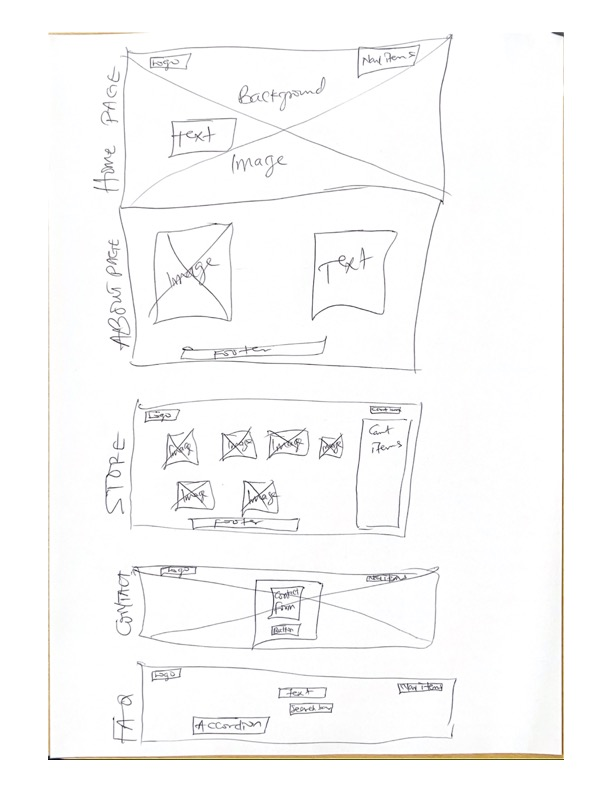 HOME PAGE
Logo
Nav items
Background
Text
Image
ABOUT PAGE
Image
Text
Footer
STORE
Logo
Image
Image
Image
Image
Cart
items
Image
Image
Footer
CONTACT
Logo
Contact
form
Button
FAQ
Logo
Text
Nav items
Search bar
Accordion